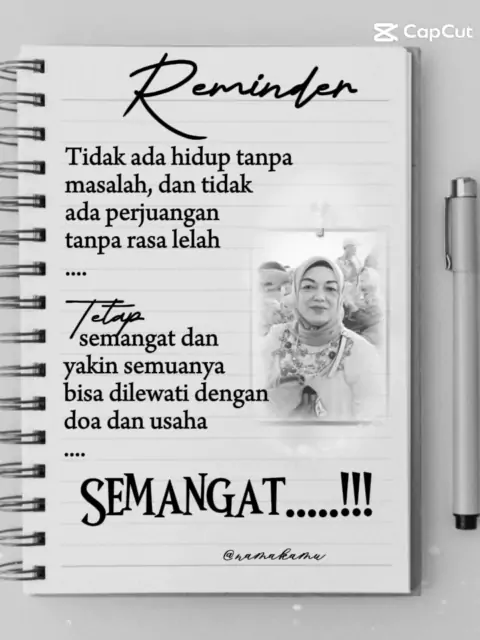 CapCut
Reminder
Tidak ada hidup tanpa
masalah, dan tidak
ada perjuangan
tanpa rasa lelah
....
Tetap
semangat dan
yakin semuanya
bisa dilewati dengan
doa dan usaha
....
SEMANGAT.....!!!
@namakamu